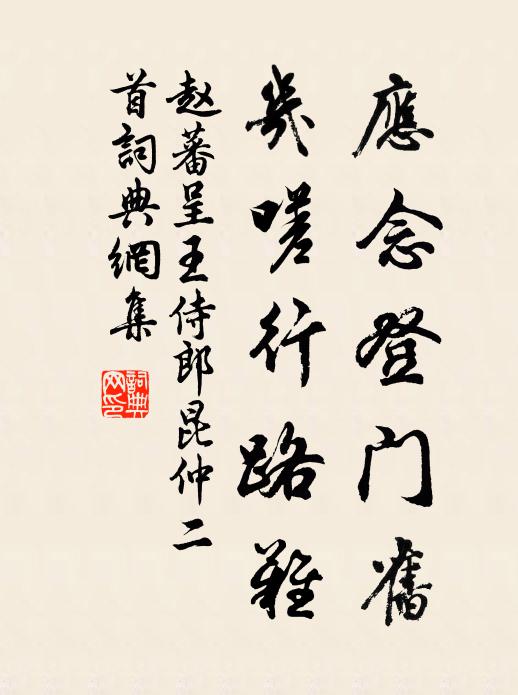 應念登门舊
幾嗟行路難
赵蕃呈王侍郎昆仲二
首詞典網集
詞典
网印